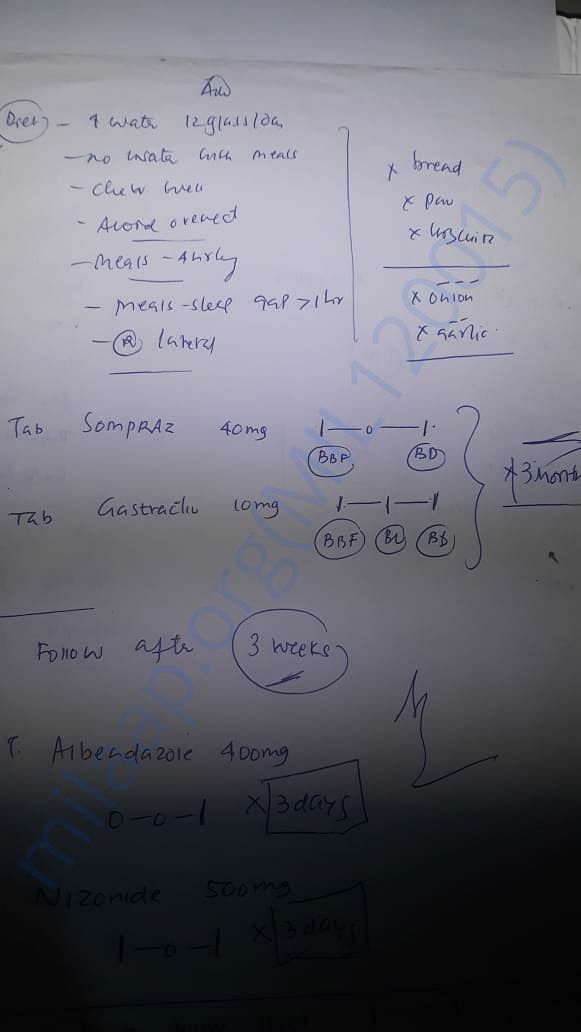 Diet - ↑ water 12 glass/day
- no water with meals
- chew well
- Avoid overeat
- meals - 4 hrly
- meals - sleep gap > 1hr
- (R) lateral
x bread
x pav
x biscuits
x onion
x garlic
Tab SompRAz 40mg 1-0-1
BBF BD
Tab 10mg 1-1-1
BBF BL BD
x 3 month
Follow after 3 weeks
T. Albendazole 400mg
0-0-1 x 3 days
Nizonide 500mg
1-0-1 x 3 days
milaap.org(MIL1200015)